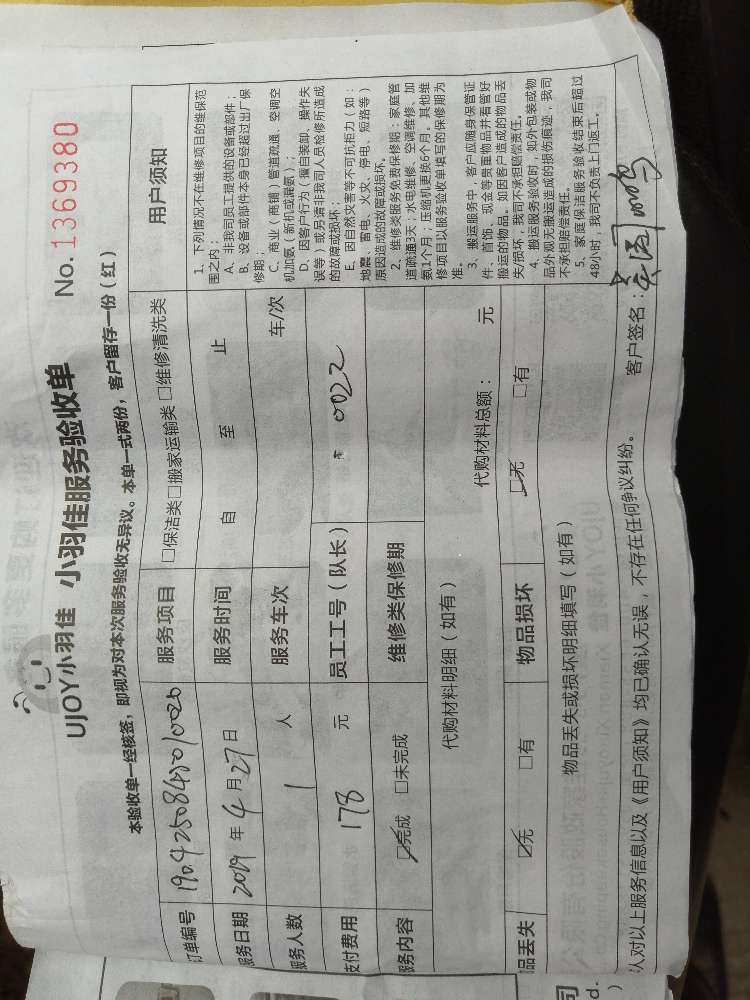 UJOY小羽佳 小羽佳服务验收单 No.1369380
本验收单一经核签，即视为对本次服务验收无异议。本单一式两份，客户留存一份（红）
订单编号 服务项目 □保洁类□搬家运输类 □维修清洗类
服务日期 2019 年 4 月 27 日 服务时间 自 至 止
服务人数 1 人 服务车次 车/次
支付费用 178 元 员工工号（队长） 0022
服务内容 ☑完成 □未完成 维修类保修期
代购材料明细（如有） 代购材料总额： 元
品丢失 ☑无 □有 物品损坏 ☑无 □有
物品丢失或损坏明细填写（如有）
人对以上服务信息以及《用户须知》均已确认无误，不存在任何争议纠纷。 客户签名：
用户须知
1、下列情况不在维修项目的维保范
围之内：
A、非我司员工提供的设备或部件；
B、设备或部件本身已经超过出厂保
修期；
C、商业（商铺）管道疏通、空调空
机加氨（新机或漏氨）；
D、因客户行为（擅自装卸、操作失
误等）或另请非我司人员检修所造成
的故障或损坏；
E、因自然灾害等不可抗拒力（如：
地震、雷电、火灾、停电、短路等）
原因造成的故障或损坏。
2、维修类服务免费保修期：家庭管
道疏通3天；水电维修、空调维修、加
氨1个月；压缩机更换6个月。其他维
修项目以服务验收单填写的保修期为
准。
3、搬运服务中，客户应随身保管证
件、首饰、现金等贵重物品并看管好
搬运的物品。如因客户造成的物品丢
失/损坏，我司不承担赔偿责任。
4、搬运服务验收时，如外包装或物
品外观无搬运造成的损伤痕迹，我司
不承担赔偿责任。
5、家庭保洁服务验收结束后超过
48小时，我司不负责上门返工。
司
d.
)